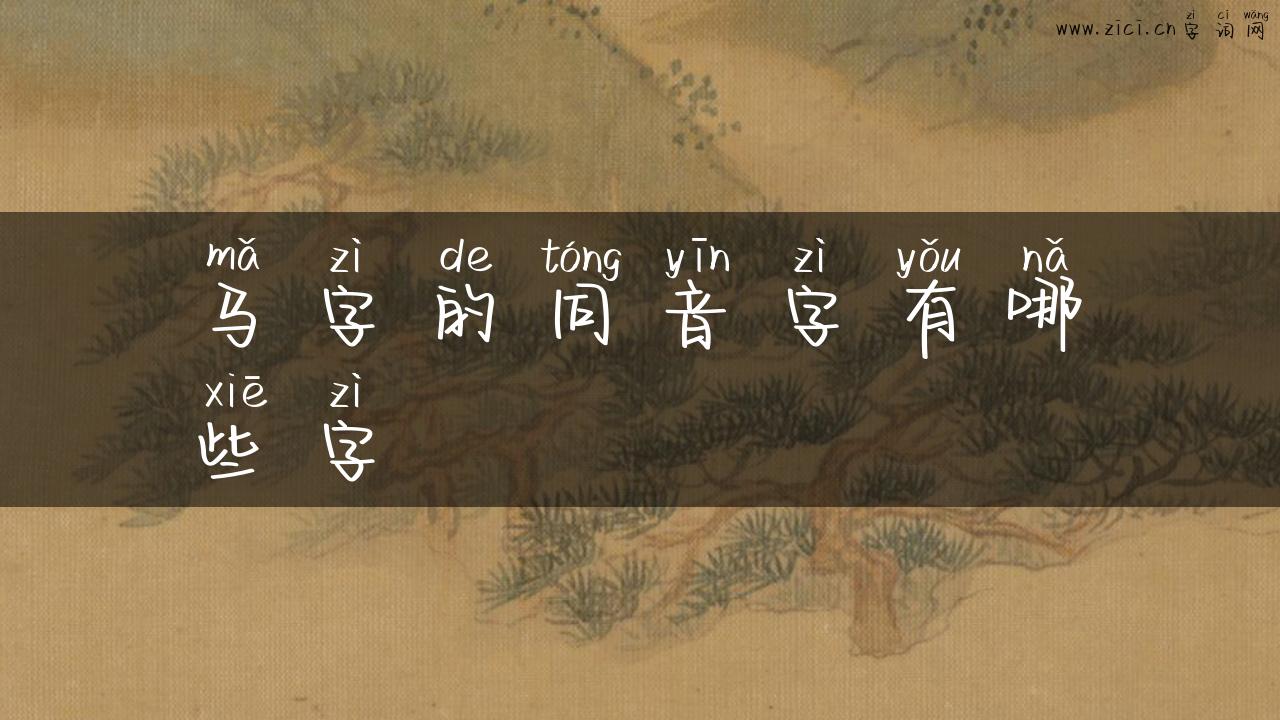 zì cí wǎng
www.zici.cn 字 词 网
mǎ zì de tóng yīn zì yǒu nǎ
马 字 的 同 音 字 有 哪
xiē zì
些 字